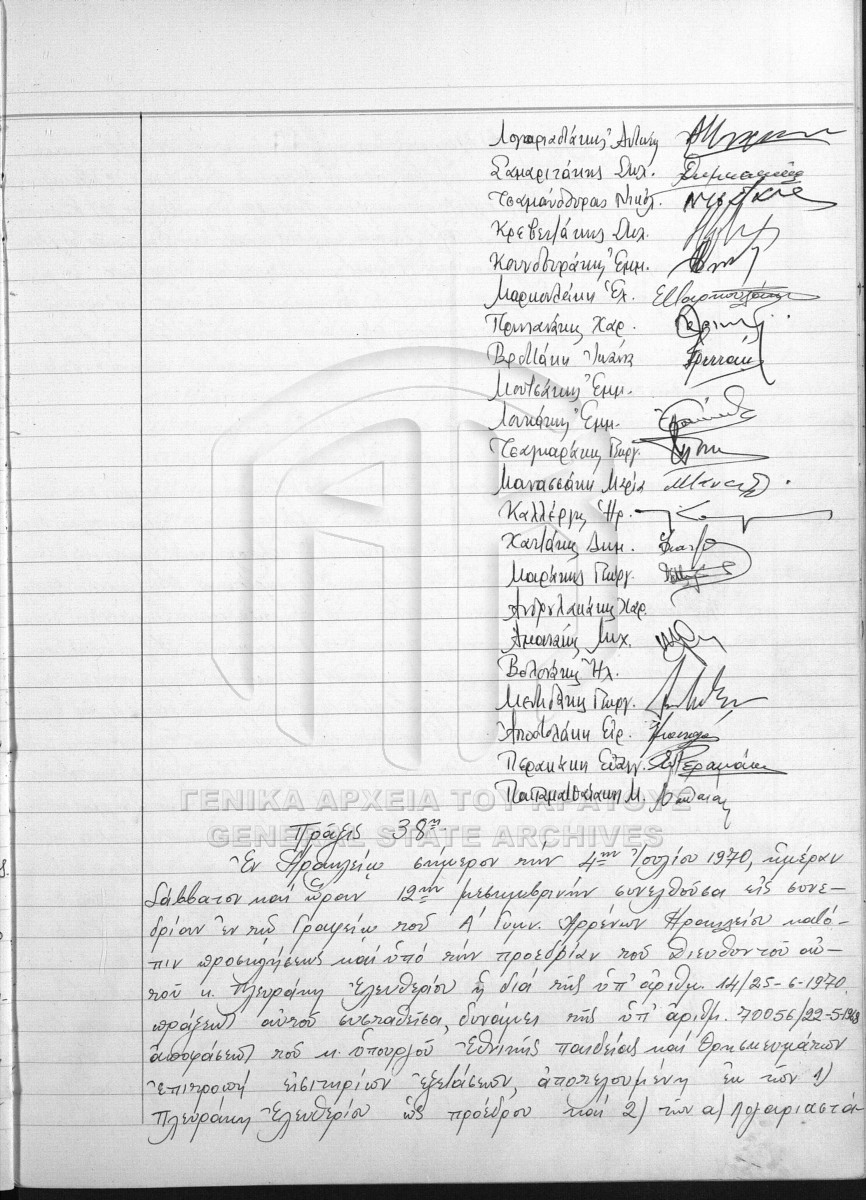 Λογαριαστάκης Ἀντών.
Σαμαριτάκης Μιχ.
Τσαμάνδουρας Νικόλ.
Κρεβετζάκης Μιχ.
Κουνδουράκης Ἐμμ.
Μαρκουλάκη Ἑλ.
Πρινιανάκης Χαρ.
Βρεττάκη
Μουτσάκης Ἐμμ.
Λουκάκης Ἐμμ.
Τσαγκαράκης Γεώργ.
Μανασσάκη Μαρία
Καλλέργης Ἡρ.
Χατζάκης Δημ.
Μαράκης Γεώργ.
Ἀνδρουλακάκης Χαρ.
Μιχ.
Βολονάκης Ἠλ.
Γεώργ.
Ἀποστολάκη Εἰρ.
Περακάκη Εὐαγγ.
Παπαματθαιάκη Μ.
ΓΕΝΙΚΑ ΑΡΧΕΙΑ ΤΟΥ ΚΡΑΤΟΥΣ
GENERAL STATE ARCHIVES
Πρᾶξις 38η.
Ἐν Ἡρακλείῳ σήμερον τήν 4ην Ἰουλίου 1970, ἡμέραν
Σάββατον καί ὥραν 12ην μεσημβρινήν συνελθοῦσα εἰς συνε-
δρίαν ἐν τῷ Γραφείῳ τοῦ Α΄ Γυμν. Ἀρρένων Ἡρακλείου κατό-
πιν προσκλήσεως καί ὑπό τήν προεδρίαν τοῦ Διευθυντοῦ αὐ-
τοῦ κ. Πλευράκη Ἐλευθερίου ἡ διά τῆς ὑπ' ἀριθμ. 14/25-6-1970
πράξεως αὐτοῦ συσταθεῖσα, δυνάμει τῆς ὑπ' ἀριθμ. 70056/22-5-1969
ἀποφάσεως τοῦ κ. Ὑπουργοῦ Ἐθνικῆς Παιδείας καί Θρησκευμάτων
ἐπιτροπή εἰσιτηρίων ἐξετάσεων, ἀποτελουμένη ἐκ τῶν 1)
Πλευράκη Ἐλευθερίου ὡς προέδρου καί 2) τῶν α) Λογαριαστά-